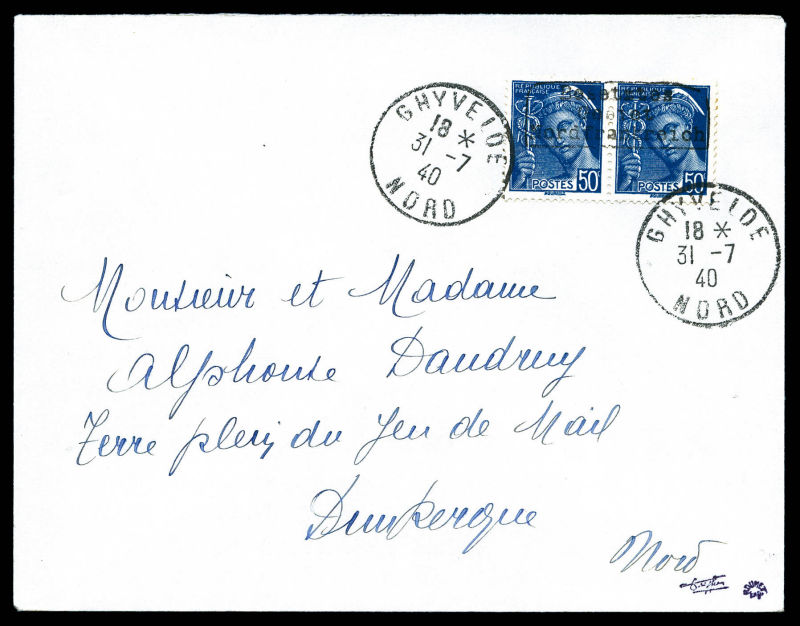 GHYVELDE
18 *
31 -7
40
NORD
RÉPUBLIQUE FRANÇAISE
POSTES 50
RÉPUBLIQUE FRANÇAISE
POSTES 50
Besetztes
Gebiet
Nordfrankreich
GHYVELDE
18 *
31 -7
40
NORD
Monsieur et Madame
Alphonse Dandruy
Terre plein du Jeu de Mail
Dunkerque
Nord